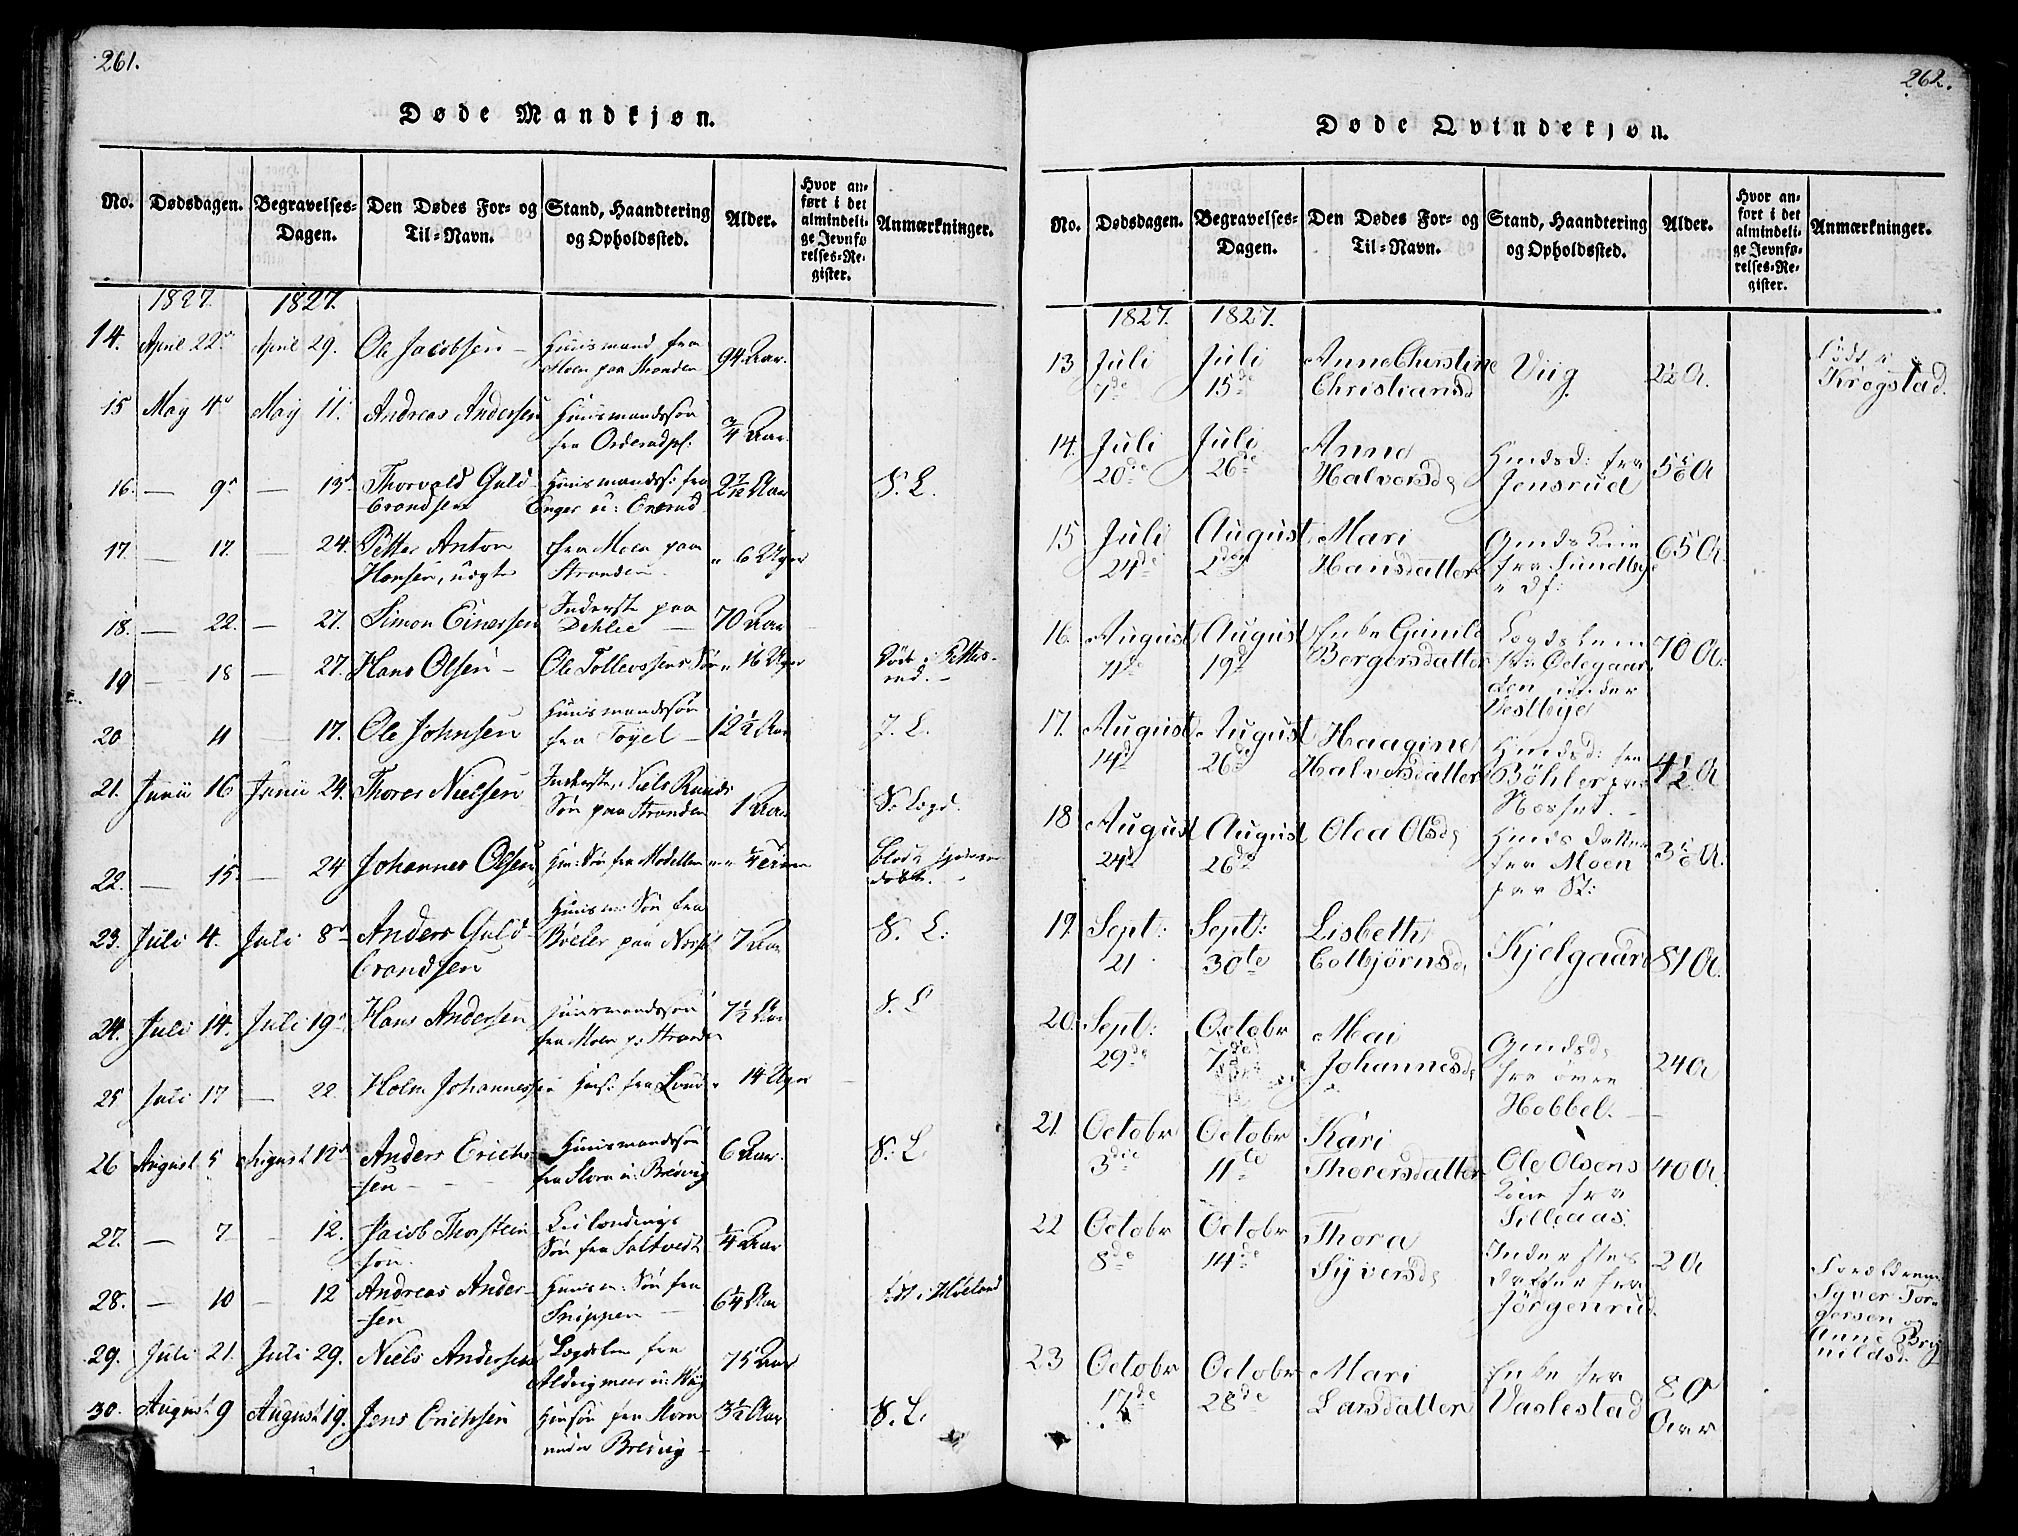 261.
Døde Mandkjøn.
No. Dødsdagen. Begravelses-Dagen. Den Dødes For- og Til-Navn. Stand, Haandtering og Opholdssted. Alder. Hvor anført i det almindelige Jevnførelses-Register. Anmærkninger.
1827. 1827.
14. April 22 April 29. Ole Jacobsen Huusmand fra Moen paa Stranden 94 Aar.
15 May 4 May 11. Andreas Andersen Huusmandssøn fra 3/4 Aar.
16. — 9 — 13 Thorvald Guldbrandsen Huusmands: fra Enger u: 2 7/12 Aar S. L.
17. — 17. — 24. Petter Anton Hansen, uægte fra Moen paa Stranden. " 6 Uger
18. — 22. — 27. Simon Einersen Inderst paa Dehlie 70 Aar
19 — 18 — 27. Hans Olsen Ole Tollevssens Søn " 16 Uger
20 11 — 17. Ole Johnsen Huusmandssøn fra Toyel 12 1/2 Aar
21. Junii 16 Junii 24. Thores Nielsen Inderste, Niels Søn paa Stranden 1 Aar S. Logd.
22. — 15 — 24 Johannes Olsen Hm: Søn fra Modellen
23. Juli 4. Juli 8 Anders Guldbrandsen Huusm: Søn fra Bøeler paa 7 Aar S. L:
24. Juli 14. Juli 19 Hans Andersen Huusmandssøn fra Moen p: Stranden 7 1/2 Aar S. L
25 Juli 17 — 22. Holm Johannessen fra Lund " 14 Uger
26 August 5 August 12 Anders Erichssen Huusmandssøn fra Storn u: Brevig 6 Aar. S. L.
27. — 7 — 12. Jacob Thorsteinsøn. Søn fra Saltvedt 1/4 Aar
28. — 10 — 12 Andreas Andersen Huusm: Søn fra Snippen 6 1/4 Aar
29. Juli 21. Juli 29. Niels Andersen Lægdslem fra 75 Aar
30. August 9 August 19. Jens Erichsen Hmsøn fra Storn under Brevig 3 1/2 Aar S. L.
262.
Døde Qvindekjøn.
No. Dødsdagen. Begravelses-Dagen. Den Dødes For- og Til-Navn. Stand, Haandtering og Opholdssted. Alder. Hvor anført i det almindelige Jevnførelses-Register. Anmærkninger.
1827. 1827.
13 Juli 7de Juli 15de Anne Christine Christiansd Viig. 2 1/2 A. Født i Krogstad.
14. Juli 20de Juli 26de Anne Halvorsd Hmdsd: fra Jonsrud
15 Juli 24de August 2den Mari Hansdatter Gmds Kone fra Sundbye 65 A.
16. August 11de August 19d Enke Gunild Bergersdatter Lægdslem Ødegaarden under Vestbye 70 A:
17. August 14d August 26de Haagine Halvorsdatter Hmdsd: fra Bøhler paa Nesset. 4 1/2 A
18 August 24d August 26de Olea Olsd Hmds datter fra Moen paa St:
19. Sept: 21 Sept: 30te Lisbeth Colbjørnsd Kjelgaard 81 A.
20. Sept: 29de Octobr 7de Mai Johannesd Gmdsd fra øvre Hobbel. 24 A
21 Octobr 3die Octobr 11te Kari Thorersdatter Ole Olsens Kone fra Lilleaas. 40 A.
22 Octobr 8de Octobr 14de Thora Syversd Inderstes datter fra Jørgenrud 2 A Forældrene Syver Torgersen og Anne
23 Octobr 17de Octobr 28de Mari Larsdatter Enke fra Vaslestad 80 Aar